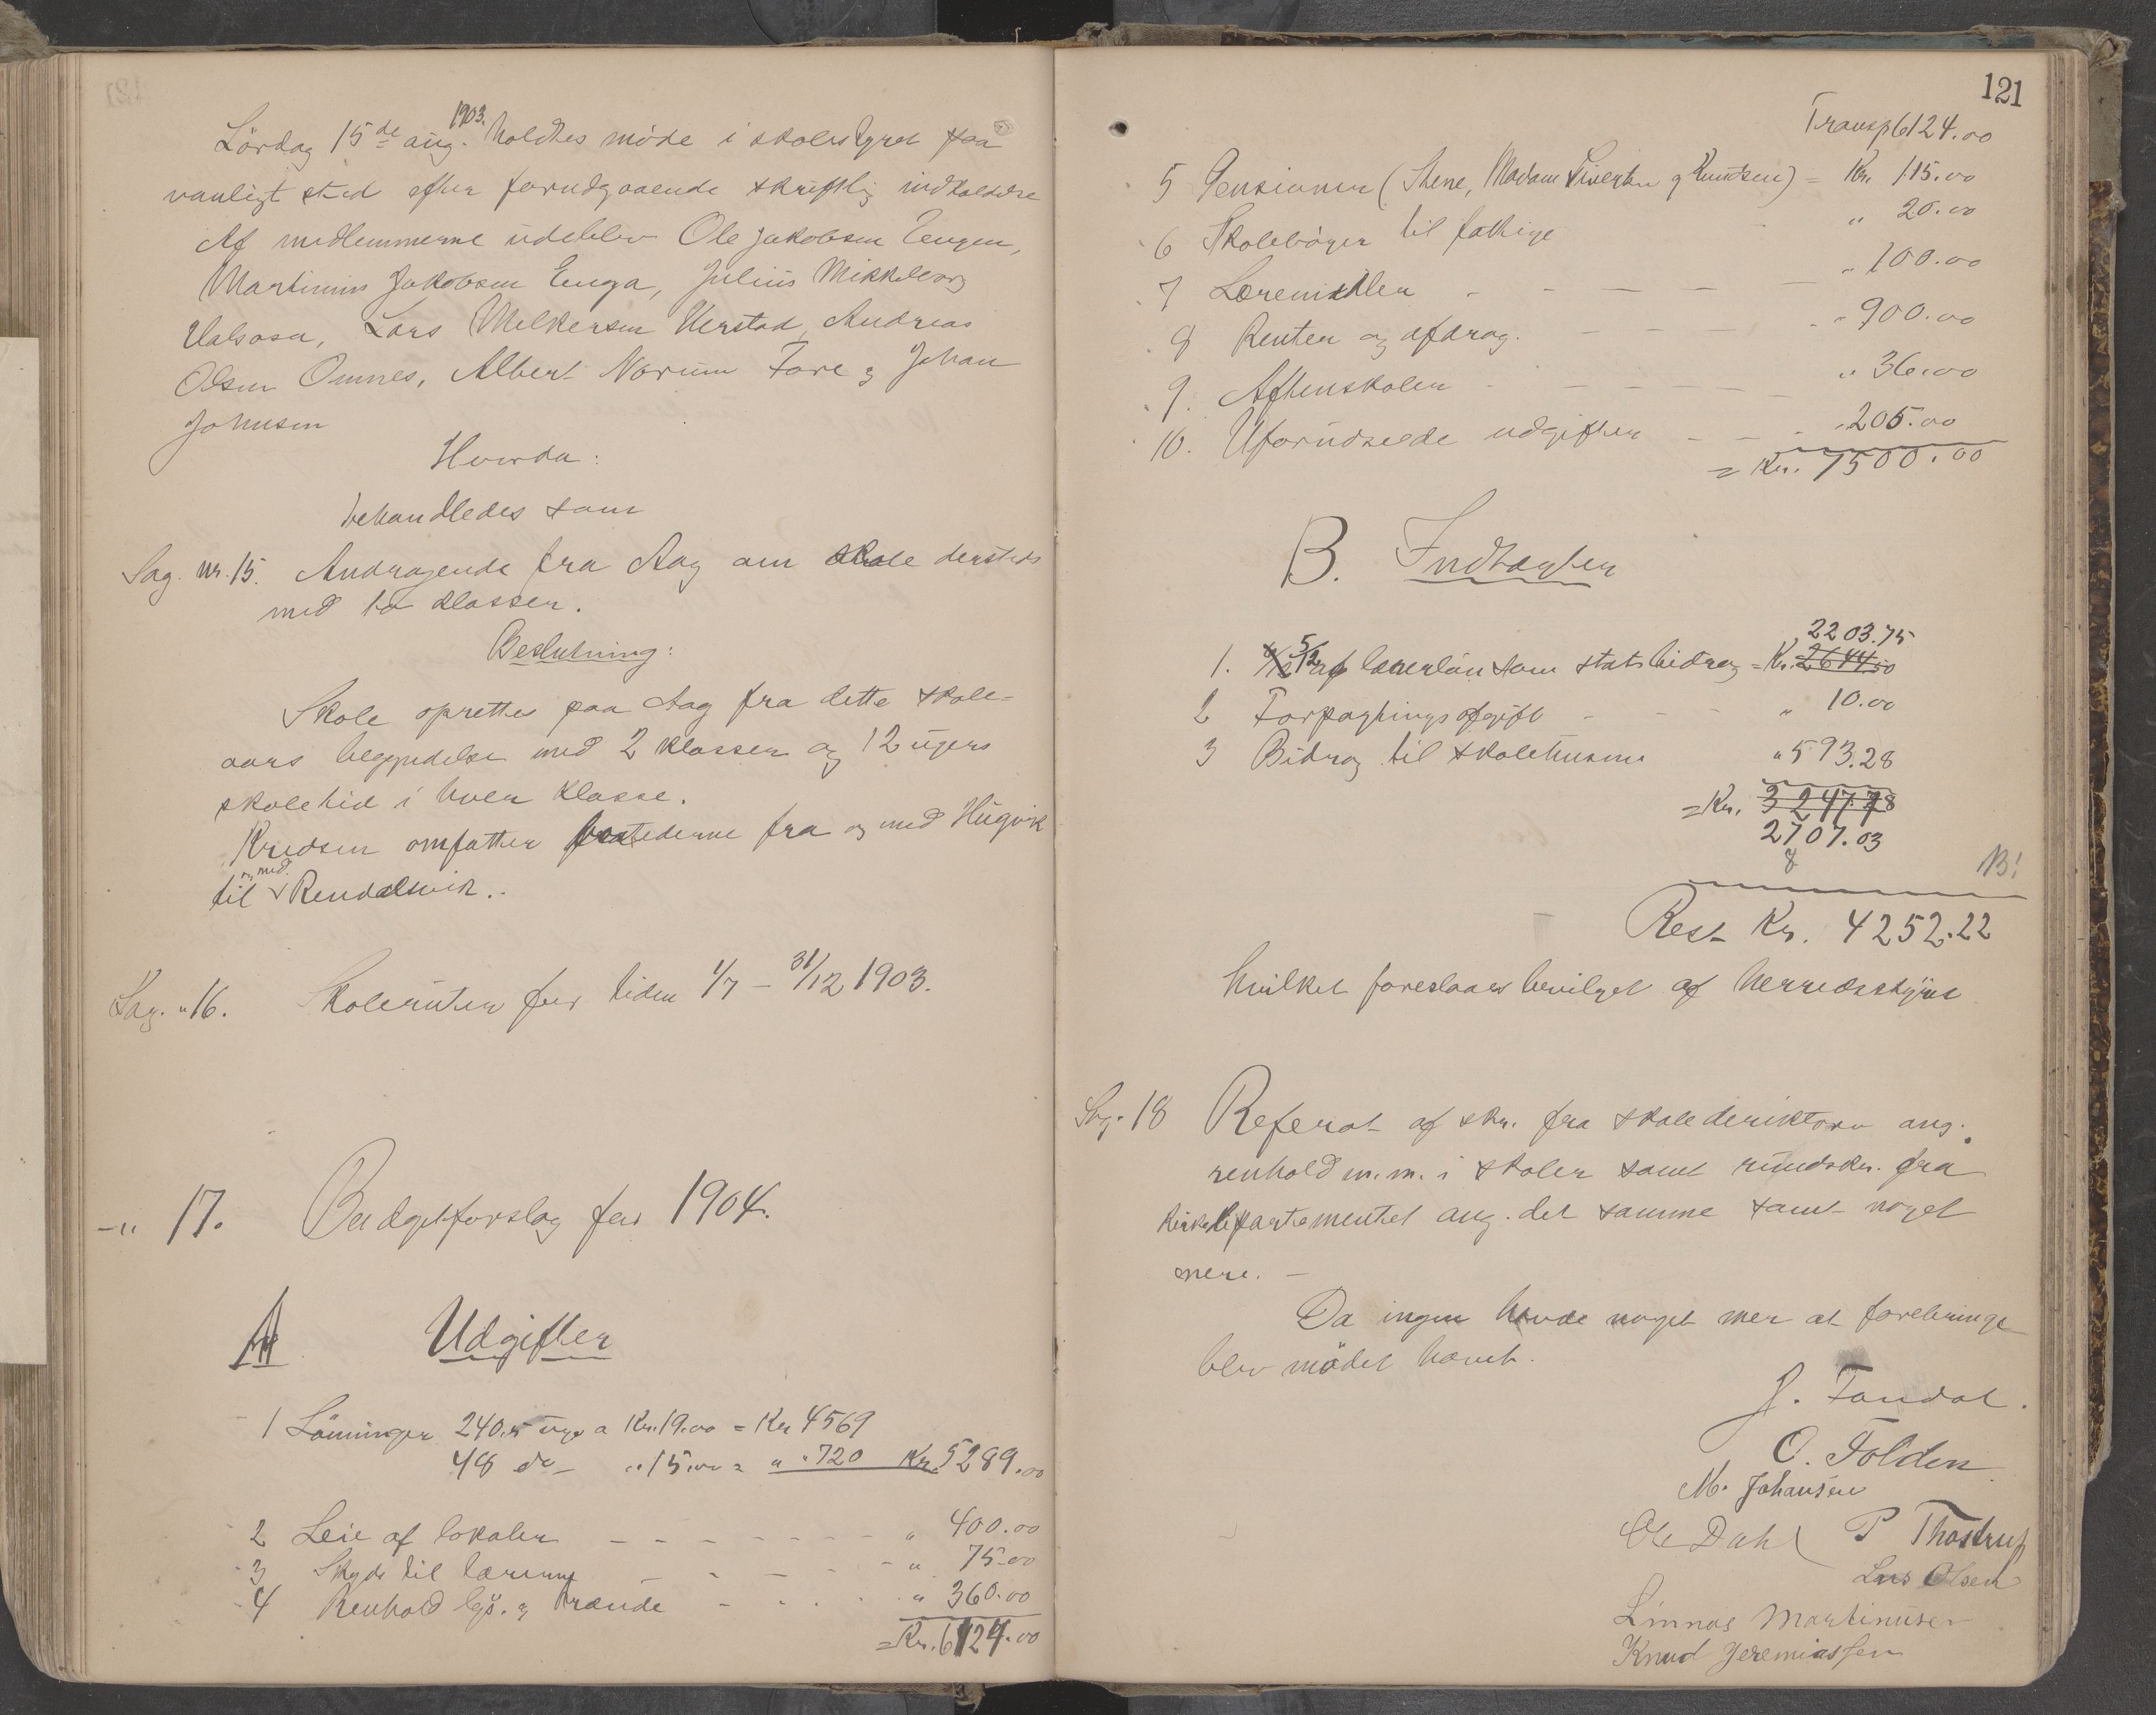 Lördag 15de aug. 1903. holdtes möde i skolestyret paa
vanligt sted efter forudgaaende skriftlig indkaldelse
Af medlemmerne udeblev Ole Jakobsen Eengen,
Martinus Jakobsen Enga, Julius Mikkelsen
Valsosa, Lars Melkersen Nerstad, Andreas
Olsen Omnes, Albert Norum Fore og Johan
Johnsen
Hvorda:
behandledes som
Sag. nr. 15. Andragende fra Aag om skole dersteds
med to klasser.
Beslutning:
Skole oprettes paa Aag fra dette skole-
aars begyndelse med 2 klasser og 12 ugers
skoletid i hver klasse.
Kredsen omfatter bostederne fra og med Hugvik
til og med Rendalsvik.
Sag. " 16. Skoleruten for tiden 1/7 - 31/12 1903.
-" 17. Budgetforslag for 1904.
A Udgifter
1 Lönninger 240.5 uge a Kr. 19.00 = Kr 4569
48 do - " 15.00 = " " 720 Kr. 5289.00
2 Leie af lokaler - - - - - - - " 400.00
3 Skyds til lærerne - - - - - " 75.00
4 Renhold lys. og brænde - - - - " 360.00
= Kr. 6124.00
121
Transp 6124.00
5 Pensioner (Stene, Madam Sivertsen og Knudsen) = Kr. 115.00
6 Skoleböger til fattige " 20.00
7 Læremidler - - - - - " 100.00
8 Renter og afdrag. - - - - " 900.00
9. Aftenskolen - - - - - " 36.00
10. Uforudseede udgifter - - - " 205.00
= Kr. 7500.00
B. Indtægter
2203.75
1. 6/12 5/12 af lærerlön som statsbidrag = Kr. 2644.50
2 Forpagtningsafgift - - - " 10.00
3 Bidrag til skolehusene " 593.28
= Kr. 3247.78
2707.03
B!
Rest Kr. 4252.22
hvilket foreslaaes bevilget af herredsstyret
Sag. 18 Referat af skr. fra skoledirektören ang.
renhold m.m. i skoler samt rundskr. fra
kirkedepartementet ang. det samme samt noget
mere. -
Da ingen havde noget mer at forebringe
blev mödet hævet.
J. Tandal.
O. Folden
M. Johansen
Ole Dahl P Thostrup
Lars Olsen
Linnas Martinusen
Knud Jeremiassen